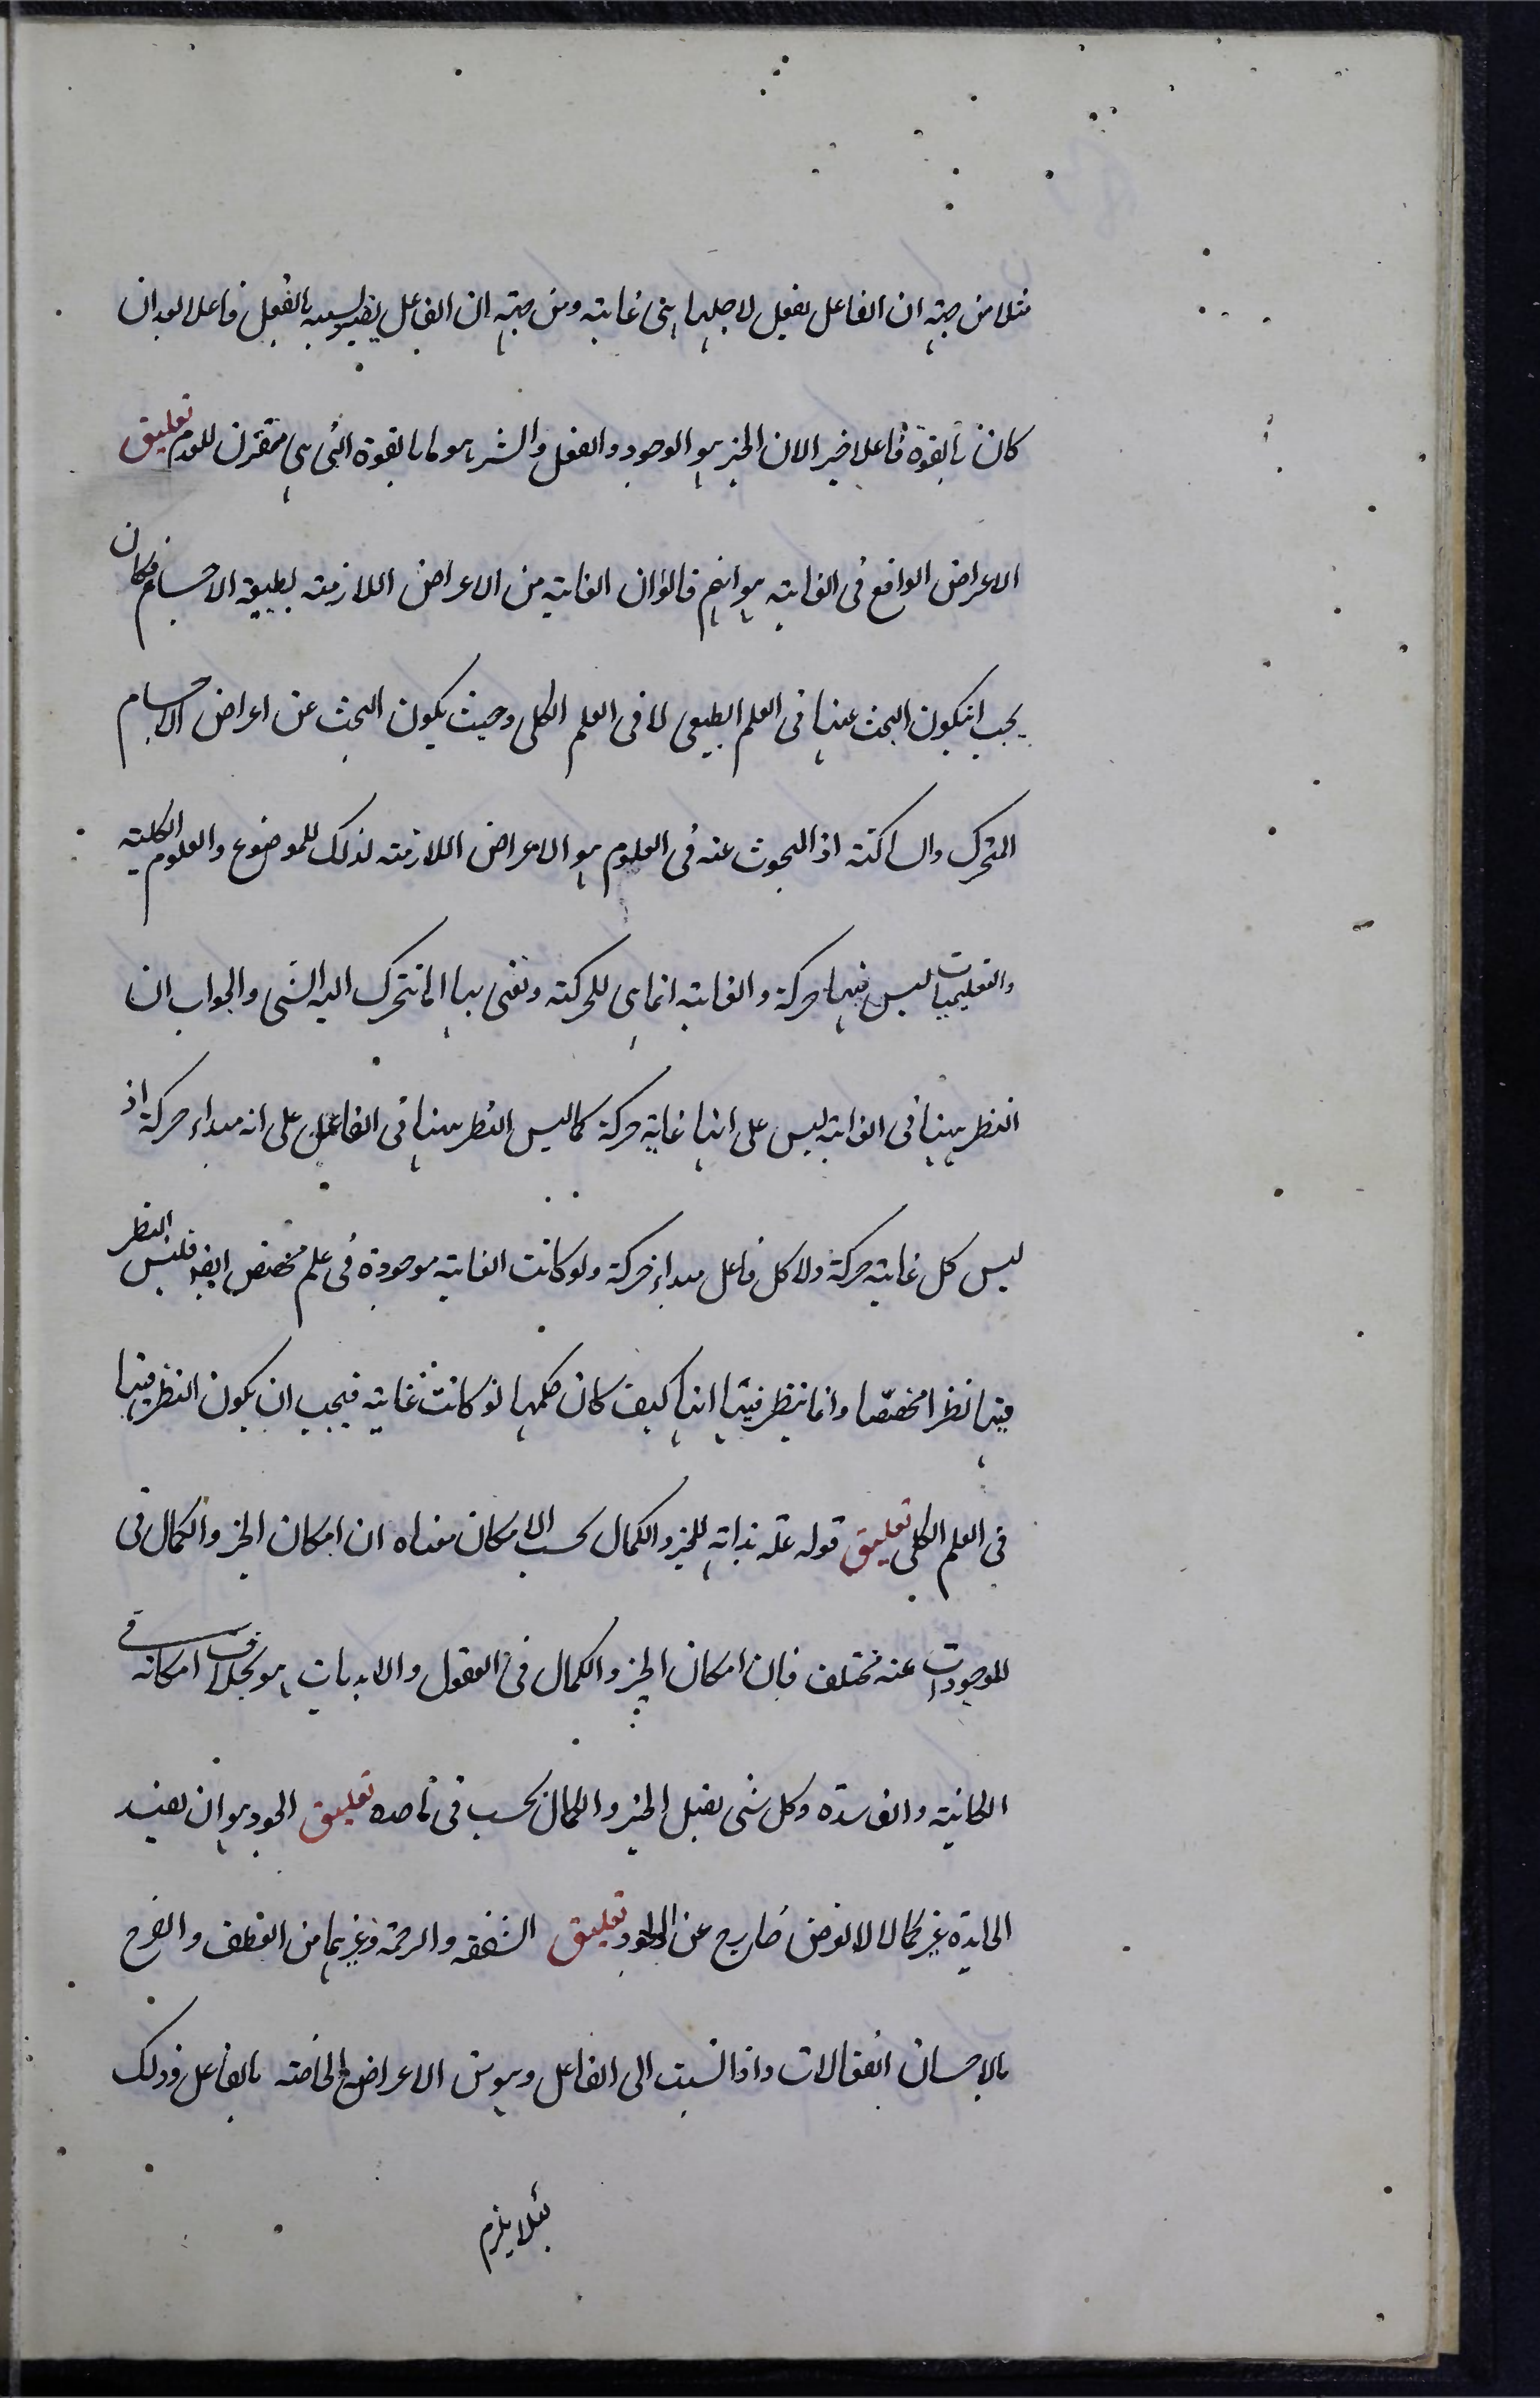 مثلا من جهة ان الفاعل يفعل لاجلها هي غاية ومن جهة ان الفاعل يصير بسببه بالفعل فاعلا بعد ان
كان بالقوة فاعلا خير الان الخير هو الوجود والفعل والشر هو ما بالقوة التي هي مقترن للعدم تعليق
الاعراض الواقع فى الغاية هو انهم قالوا ان الغاية من الاعراض اللازمة لطبيعة الاجسام فكان
يجب انيكون البحث عنها فى العلم الطبيعى لا فى العلم الكلى وحيث يكون البحث عن اعراض الاجسام
المتحرك والساكنة اذ المبحوث عنه فى العلوم هو الاعراض اللازمة لذلك للموضوع والعلوم الكلية
والتعليميات ليس فيها حركة والغاية انما هى للحركة ونعنى بها ما يتحرك اليه الشى والجواب ان
النظر ههنا فى الغاية ليس على انها غاية حركة كما ليس النظر ههنا فى الفاعل على انه مبداء حركة اذ
ليس كل غاية حركة ولا كل فاعل مبداء حركة ولو كانت الغاية موجودة فى علم مخصص ايضا فليس النظر
فيها نظرا مخصصا وانما ينظر فيها انها كيف كان حكمها لو كانت غاية فيجب ان يكون النظر فيها
فى العلم الكلى تعليق قوله علة بذاته للخير والكمال بحسب الامكان معناه ان امكان الخير والكمال فى
الموجودات عنه مختلف فان امكان الخير والكمال فى العقول والابديات هو بخلاف امكانه فى
الكائنة والفاسدة وكل شى يقبل الخير والكمال بحسب فى ما حده تعليق الجود هو ان يفيد
الجايدة غيره كمالا لا لغرض خارج عن الجود تعليق الشفقة والرحمة وغيرهما من العطف والفرح
بالاحسان انفعالات واذا نسبت الى الفاعل وهو من الاعراض الخاصة بالفاعل وذلك
لئلا يلزم